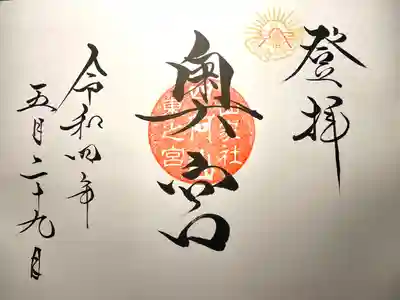 登拝
奥宮
東之宮
令和四年
五月二十九日